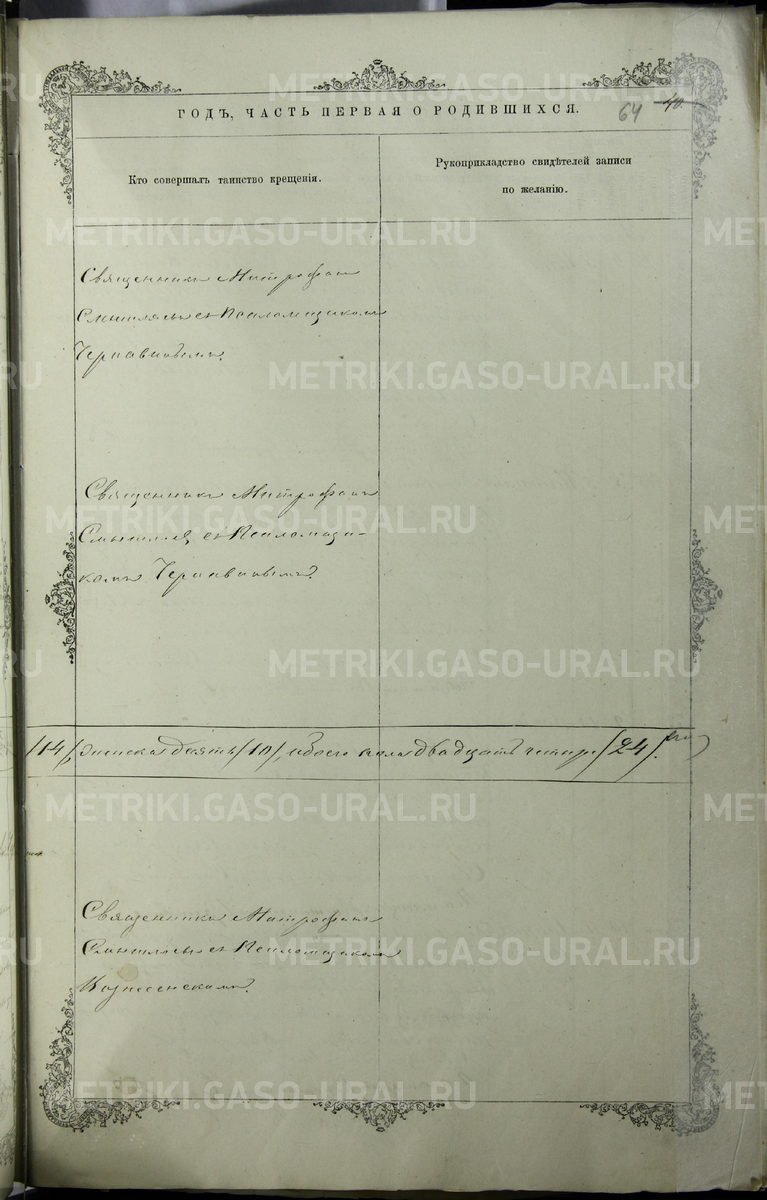 ГОДЪ, ЧАСТЬ ПЕРВАЯ О РОДИВШИХСЯ.
64 40
Кто совершалъ таинство крещенія.
Рукоприкладство свидѣтелей записи
по желанію.
Священникъ Митрофанъ
съ Псаломщикомъ
Священникъ Митрофанъ
съ Псаломщи-
комъ
/14/, женска десять /10/, обоего пола двадцать четыре /24/.
Священникъ Митрофанъ
съ Псаломщикомъ
Вознесенскимъ.
METRIKI.GASO-URAL.RU